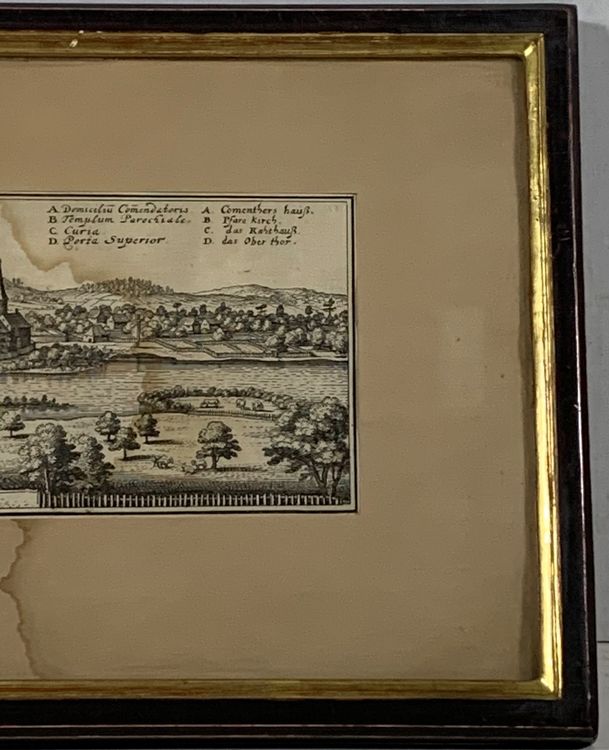 A. Domiciliū Com̄endatoris. A. Comenthers hauß.
B. Templum Parochiale. B. Pfarr kirch.
C. Curia C. das Rahthauß.
D. Porta Superior. D. das Ober thor.